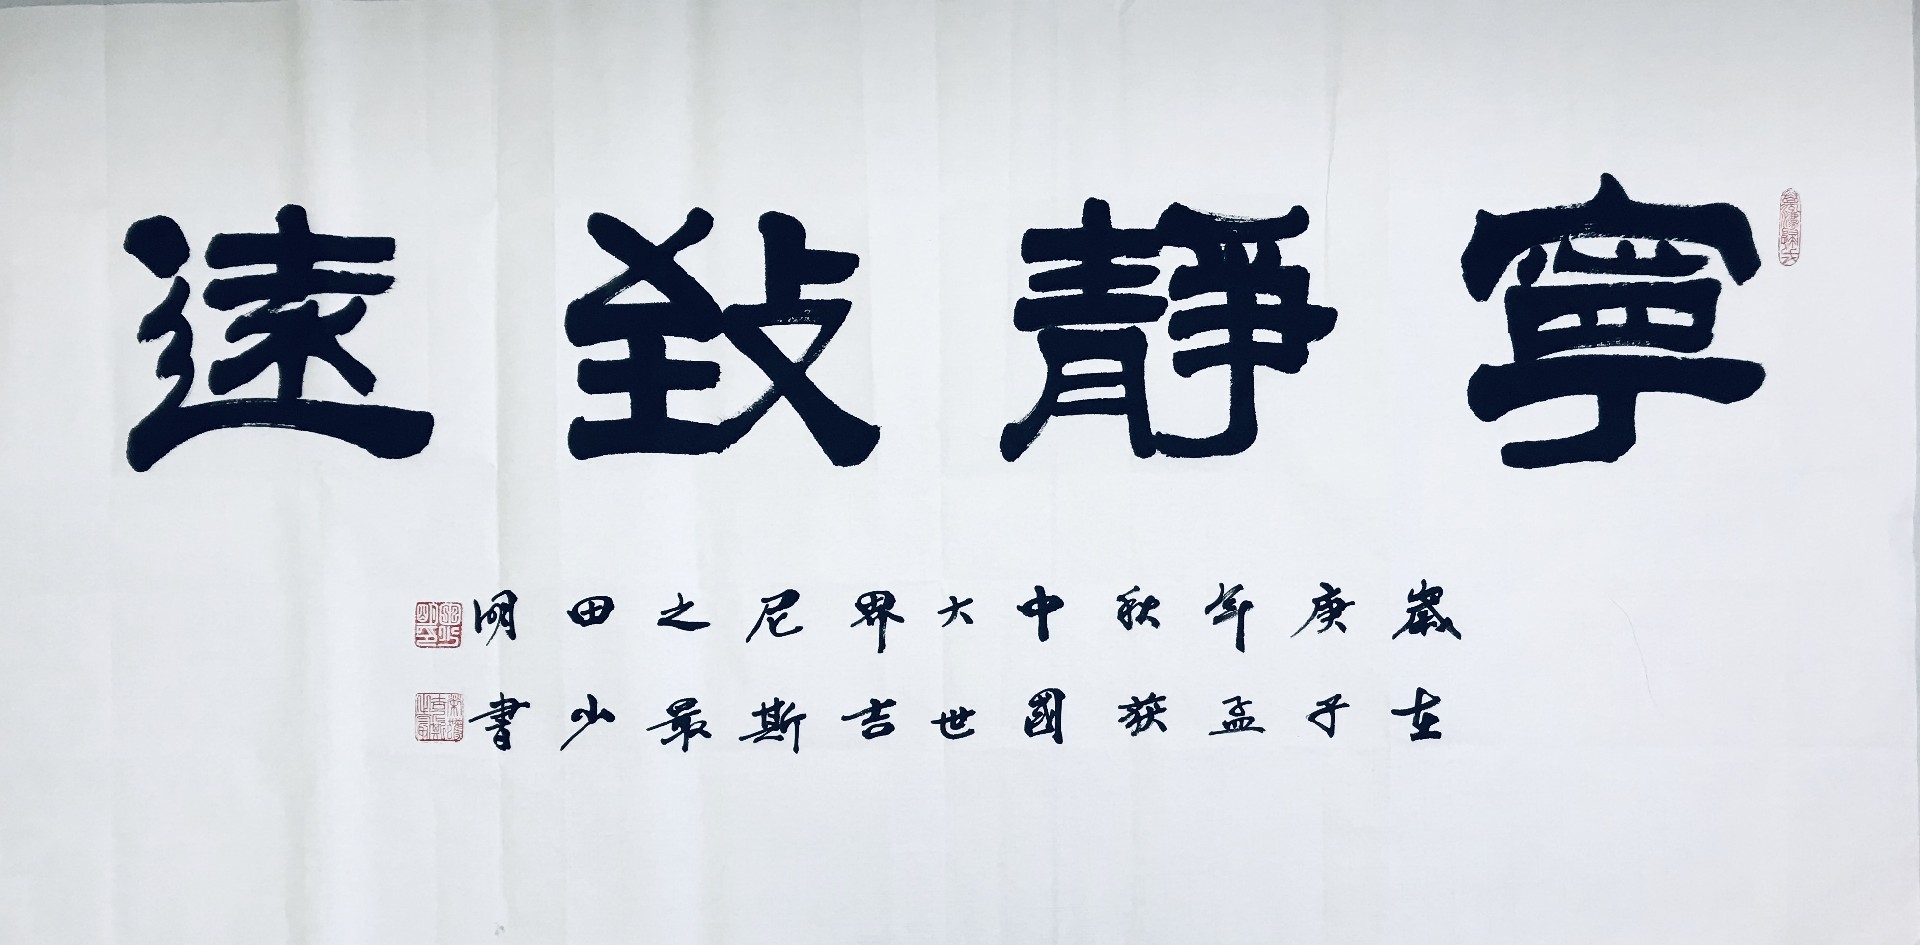 寧靜致遠
歲在
庚子
年孟
秋获
中國
大世
界吉
尼斯
之最
田少
明書